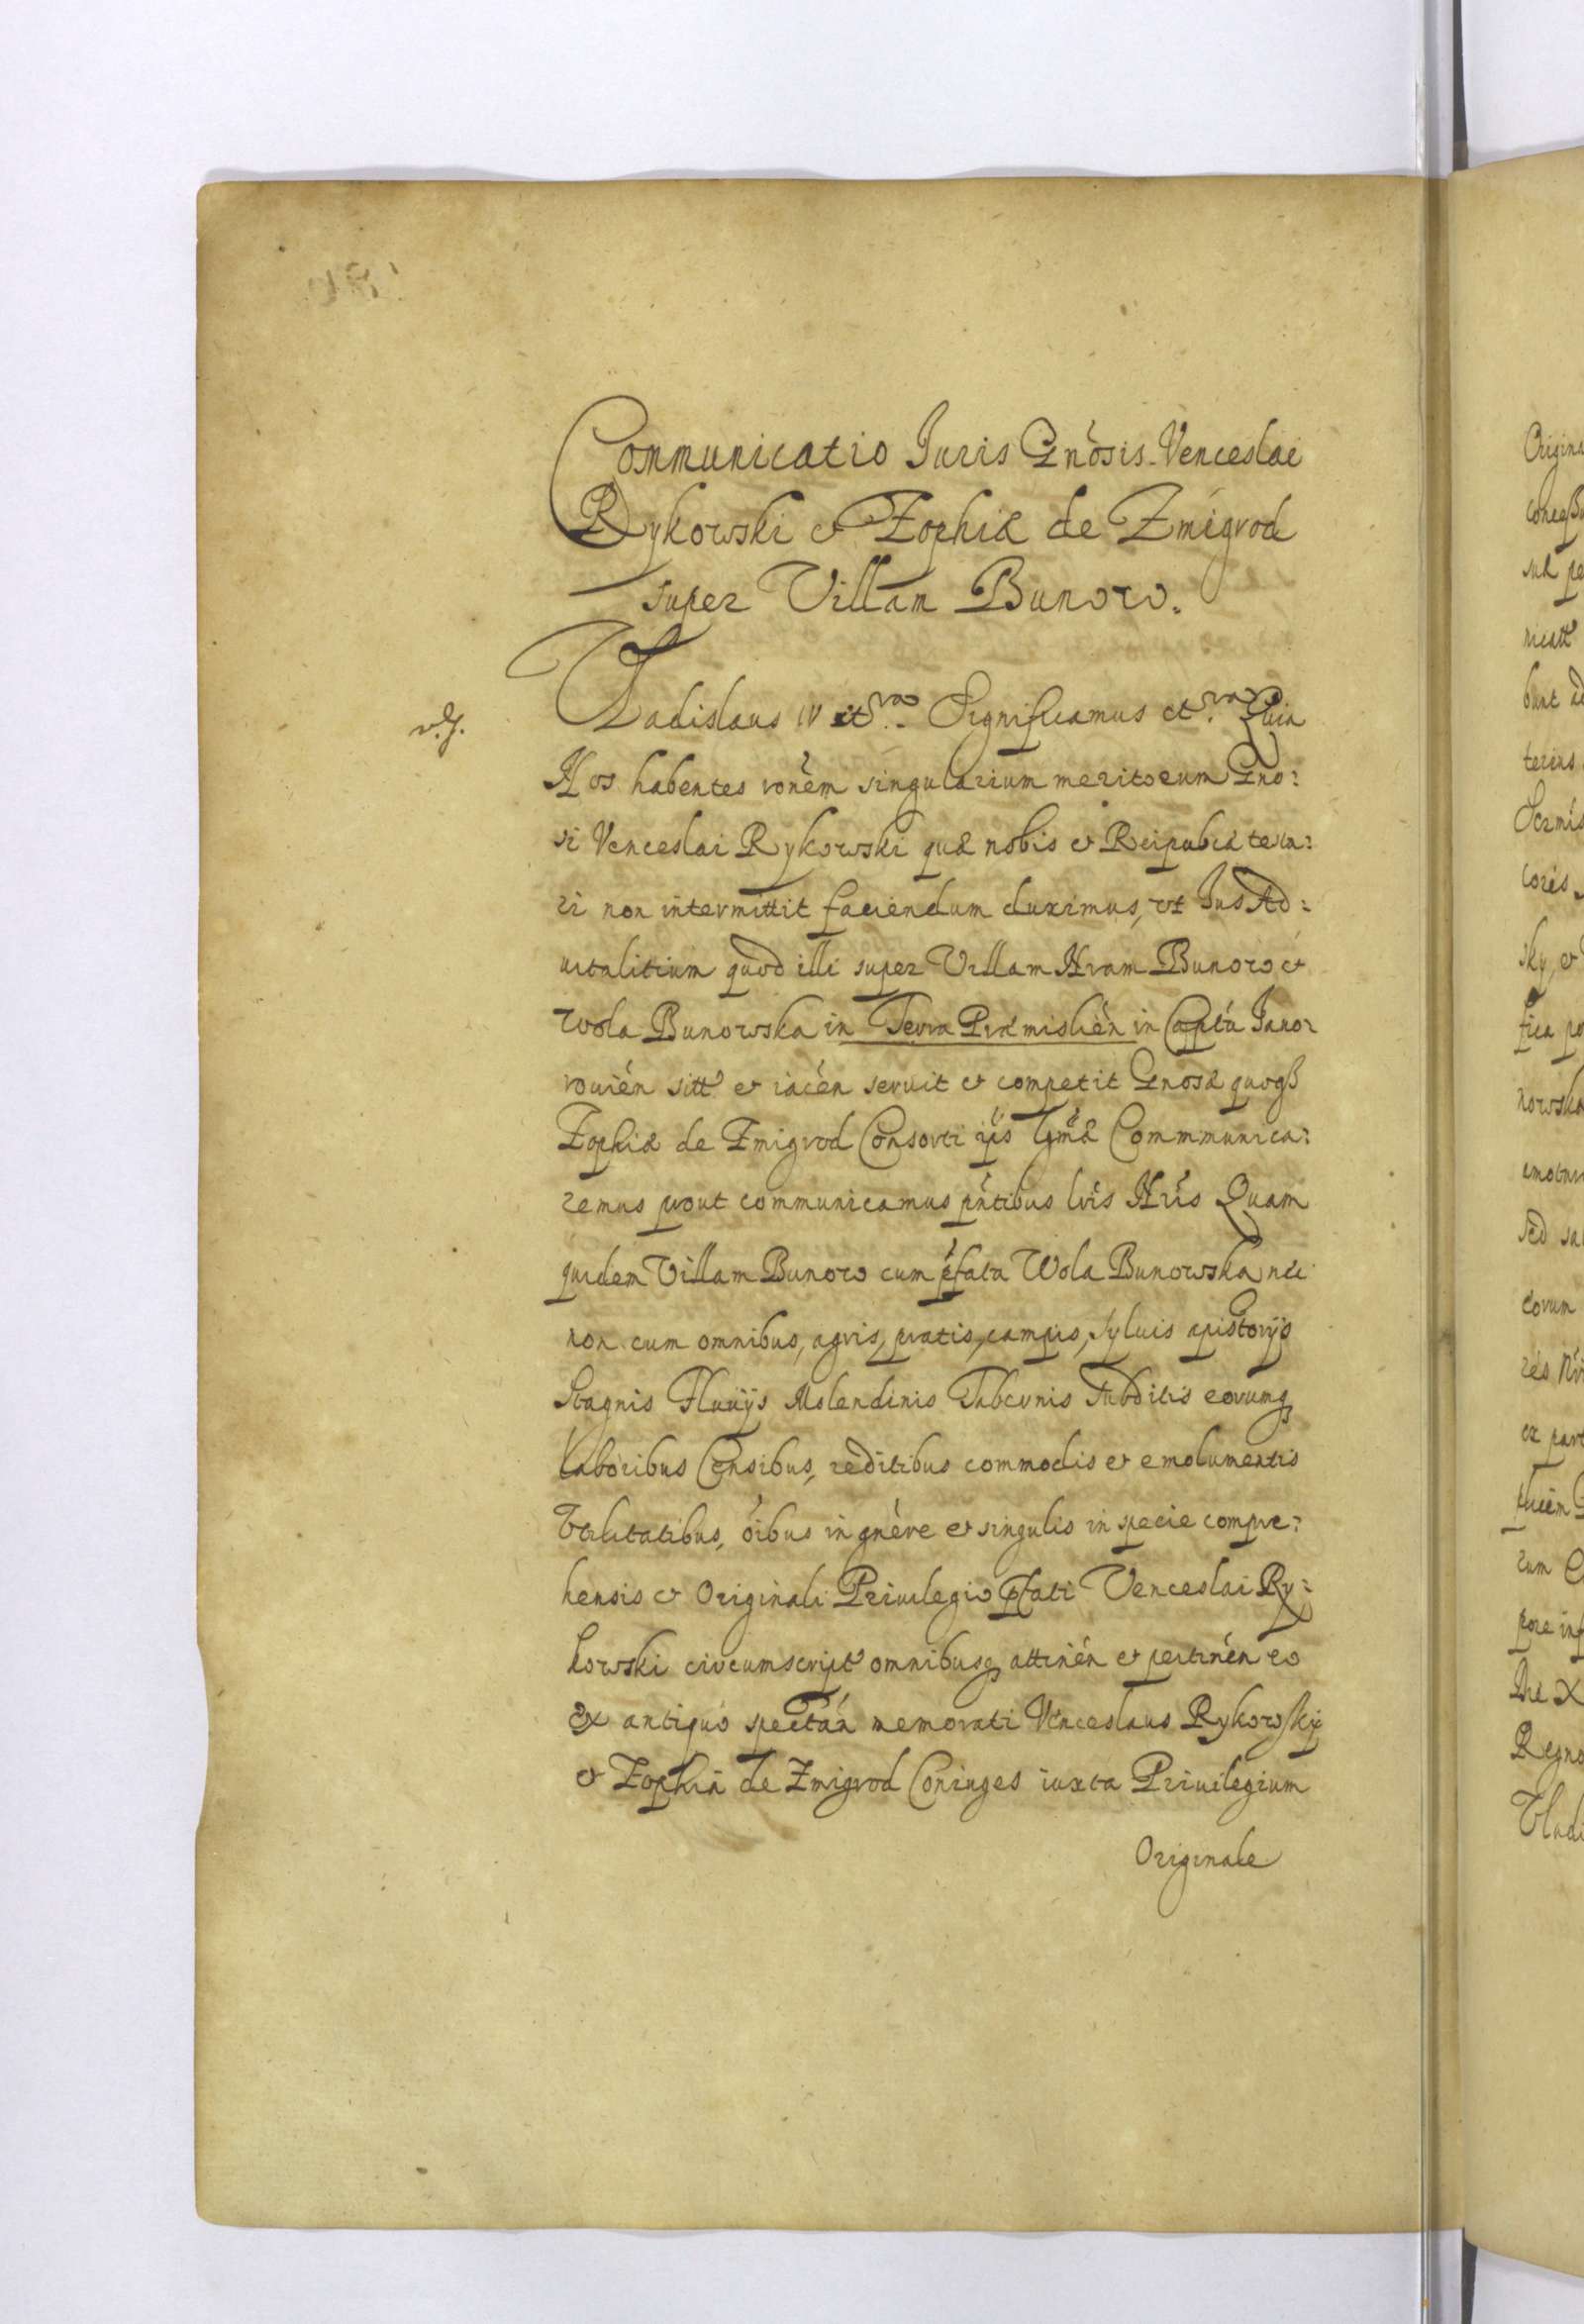 Communicatio Iuris Gnosis Venceslai
Rykowski et Zophiæ de Zmigrod
super Villam Bunow.
Vladislaus IV etc. Significamus etc. Quia
Nos habentes ronem singularium meritorum Gno:
si Venceslai Rykowski quæ nobis et Reipubcæ
ri non intermittit faciendum duximus, vt Ius Ad:
uitalitium quod illi super Villam Nram Bunow et
Wola Bunowska in Terra Præmislien in Capitu Iauo:
rouien sitt et iacen seruit et competit Gnosæ quoqß
Zophiæ de Zmigrod Consorti ips Commmunica:
remus prout communicamus pntibus lris Nris Quam
quidem Villam Bunow cum pfata Wola Bunowska nec
non cum omnibus, agris, pratis, campis, syluis apistorijs
Stagnis Fluuijs Molendinis Tabernis Subditis eorumq
Laboribus Censibus, reditibus commodis et emolumentis
Vtilitatibus, oibus in gnere et singulis in specie compre:
hensis et Originali Priuilegio pfati Venceslai Ry:
kowski circumscript omnibusq attinen et pertinen eo
ex antiquo spectan memorati Venceslaus Rykowsky
et Zophia de Zmigrod Coniuges iuxta Priuilegium
Originale